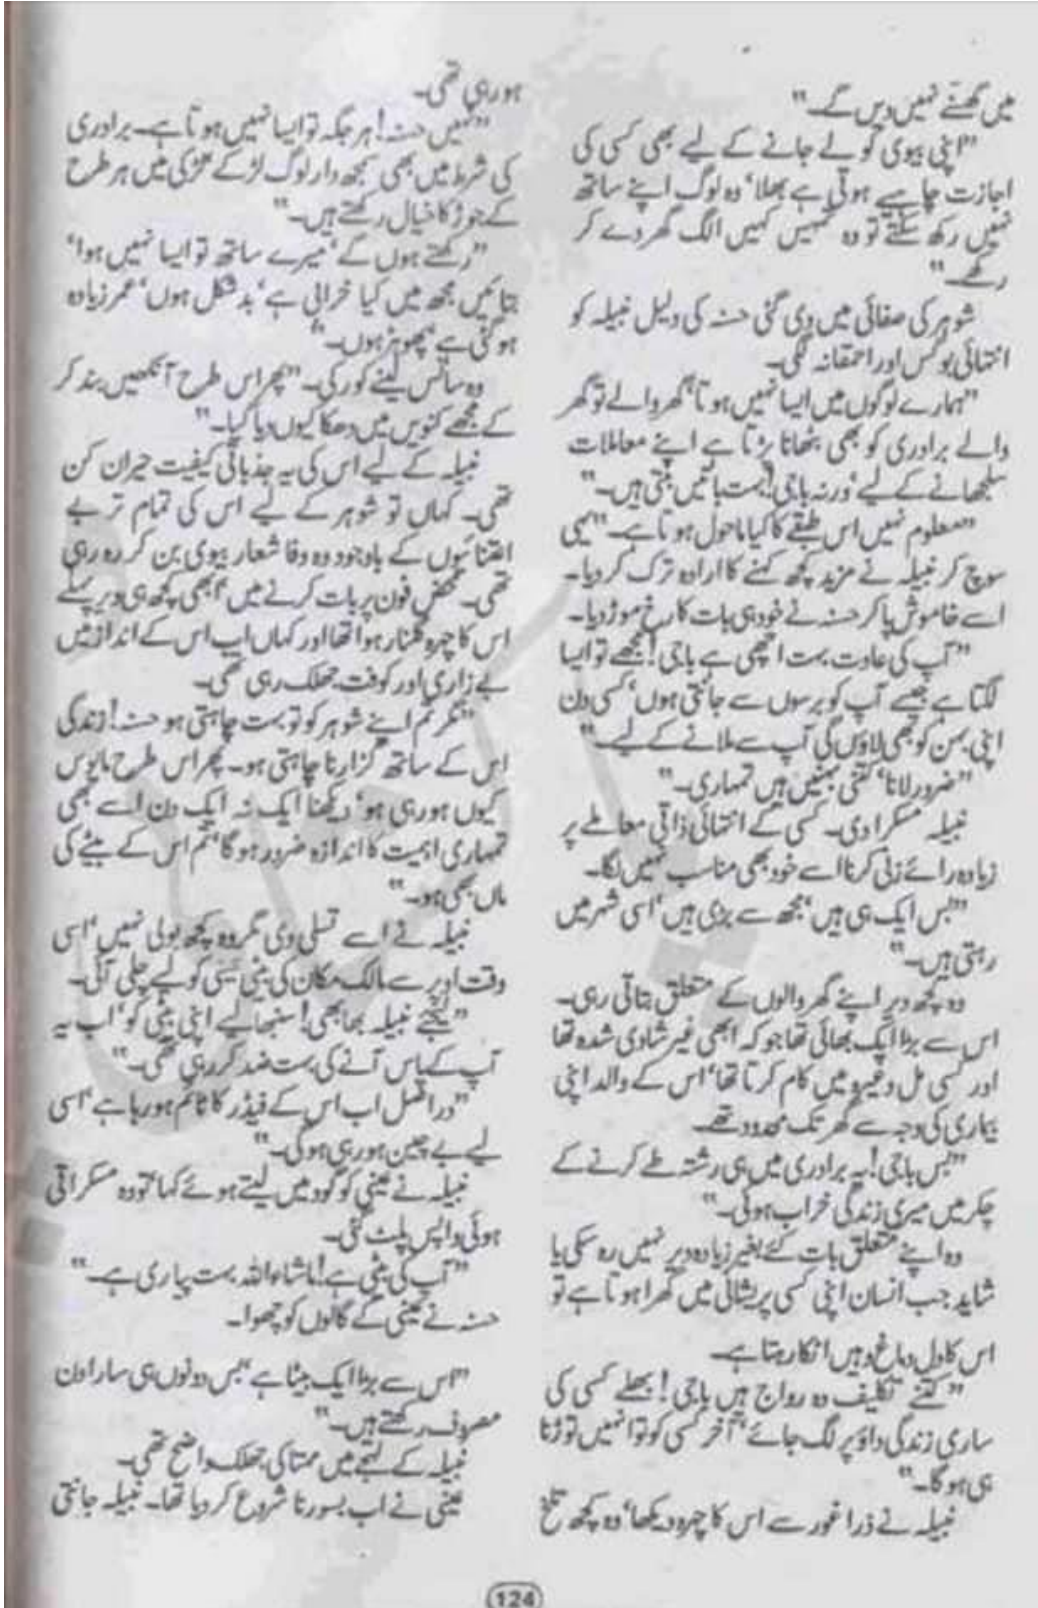 میں گھسنے نہیں دیں گے۔"
"اپنی بیوی کو لے جانے کے لیے بھی کسی کی
اجازت چاہیے ہوتی ہے بھلا' وہ لوگ اپنے ساتھ
نہیں رکھ سکتے تو وہ تمہیں کہیں الگ گھر دے کر
رکھے۔"
شوہر کی صفائی میں دی گئی حسنہ کی دلیل نبیلہ کو
انتہائی بوگس اور احمقانہ لگی۔
"ہمارے لوگوں میں ایسا نہیں ہوتا' گھر والے تو گھر
والے برادری کو بھی بٹھانا پڑتا ہے اپنے معاملات
سلجھانے کے لیے' ورنہ باجی! بہت باتیں بنتی ہیں۔"
"معلوم نہیں اس طبقے کا کیا ماحول ہوتا ہے۔" یہی
سوچ کر نبیلہ نے مزید کچھ کہنے کا ارادہ ترک کر دیا۔
اسے خاموش پا کر حسنہ نے خود ہی بات کا رخ موڑ دیا۔
"آپ کی عادت بہت اچھی ہے باجی! مجھے تو ایسا
لگتا ہے جیسے آپ کو برسوں سے جانتی ہوں' کسی دن
اپنی بہن کو بھی لاؤں گی آپ سے ملانے کے لیے۔"
"ضرور لانا' کتنی بہنیں ہیں تمہاری۔"
نبیلہ مسکرا دی۔ کسی کے انتہائی ذاتی معاملے پر
زیادہ رائے زنی کرنا اسے خود بھی مناسب نہیں لگا۔
"بس ایک ہی ہیں' مجھ سے بڑی ہیں' اسی شہر میں
رہتی ہیں۔"
وہ کچھ دیر اپنے گھر والوں کے متعلق بتاتی رہی۔
اس سے بڑا ایک بھائی تھا جو کہ ابھی غیر شادی شدہ تھا
اور کسی مل وغیرہ میں کام کرتا تھا' اس کے والد اپنی
بیماری کی وجہ سے گھر تک محدود تھے۔
"بس باجی! یہ برادری میں ہی رشتہ طے کرنے کے
چکر میں میری زندگی خراب ہوئی۔"
وہ اپنے متعلق بات کئے بغیر زیادہ دیر نہیں رہ سکی یا
شاید جب انسان اپنی کسی پریشانی میں گھرا ہوتا ہے تو
اس کا دل دماغ وہیں اٹکا رہتا ہے۔
"کتنے تکلیف دہ رواج ہیں باجی! بھلے کسی کی
ساری زندگی داؤ پر لگ جائے' آخر کسی کو تو انہیں توڑنا
ہی ہو گا۔"
نبیلہ نے ذرا غور سے اس کا چہرہ دیکھا' وہ کچھ تلخ
ہو رہی تھی۔
"نہیں حسنہ! ہر جگہ تو ایسا نہیں ہوتا ہے۔ برادری
کی شرط میں بھی سمجھ دار لوگ لڑکے لڑکی میں ہر طرح
کے جوڑ کا خیال رکھتے ہیں۔"
"رکھتے ہوں گے' میرے ساتھ تو ایسا نہیں ہوا'
بتائیں مجھ میں کیا خرابی ہے' بد شکل ہوں' عمر زیادہ
ہو گئی ہے' پھوہڑ ہوں۔"
وہ سانس لینے کو رکی۔ "پھر اس طرح آنکھیں بند کر
کے مجھے کنویں میں دھکا کیوں دیا گیا۔"
نبیلہ کے لیے اس کی یہ جذباتی کیفیت حیران کن
تھی۔ کہاں تو شوہر کے لیے اس کی تمام تر بے
اعتنائیوں کے باوجود وہ وفا شعار بیوی بن کر رہ رہی
تھی۔ محض فون پر بات کرنے میں' ابھی کچھ ہی دیر پہلے
اس کا چہرہ گلنار ہوا تھا اور کہاں اب اس کے انداز میں
بے زاری اور کوفت جھلک رہی تھی۔
"مگر تم اپنے شوہر کو تو بہت چاہتی ہو حسنہ! زندگی
اس کے ساتھ گزارنا چاہتی ہو۔ پھر اس طرح مایوس
کیوں ہو رہی ہو' دیکھنا ایک نہ ایک دن اسے بھی
تمہاری اہمیت کا اندازہ ضرور ہو گا' تم اس کے بیٹے کی
ماں بھی ہو۔"
نبیلہ نے اسے تسلی دی مگر وہ کچھ بولی نہیں' اسی
وقت اوپر سے مالک مکان کی بیٹی عینی کو لیے چلی آئی۔
"لیجئے نبیلہ بھابھی! سنبھالیے اپنی بیٹی کو' اب یہ
آپ کے پاس آنے کی بہت ضد کر رہی تھی۔"
"دراصل اب اس کے فیڈر کا ٹائم ہو رہا ہے' اسی
لیے بے چین ہو رہی ہو گی۔"
نبیلہ نے عینی کو گود میں لیتے ہوئے کہا' تو وہ مسکراتی
ہوئی واپس پلٹ گئی۔
"آپ کی بیٹی ہے! ماشاء اللہ بہت پیاری ہے۔"
حسنہ نے عینی کے گالوں کو چھوا۔
"اس سے بڑا ایک بیٹا ہے' بس دونوں ہی سارا دن
مصروف رکھتے ہیں۔"
نبیلہ کے لہجے میں ممتا کی جھلک واضح تھی۔
عینی نے اب بسورنا شروع کر دیا تھا۔ نبیلہ جانتی
124